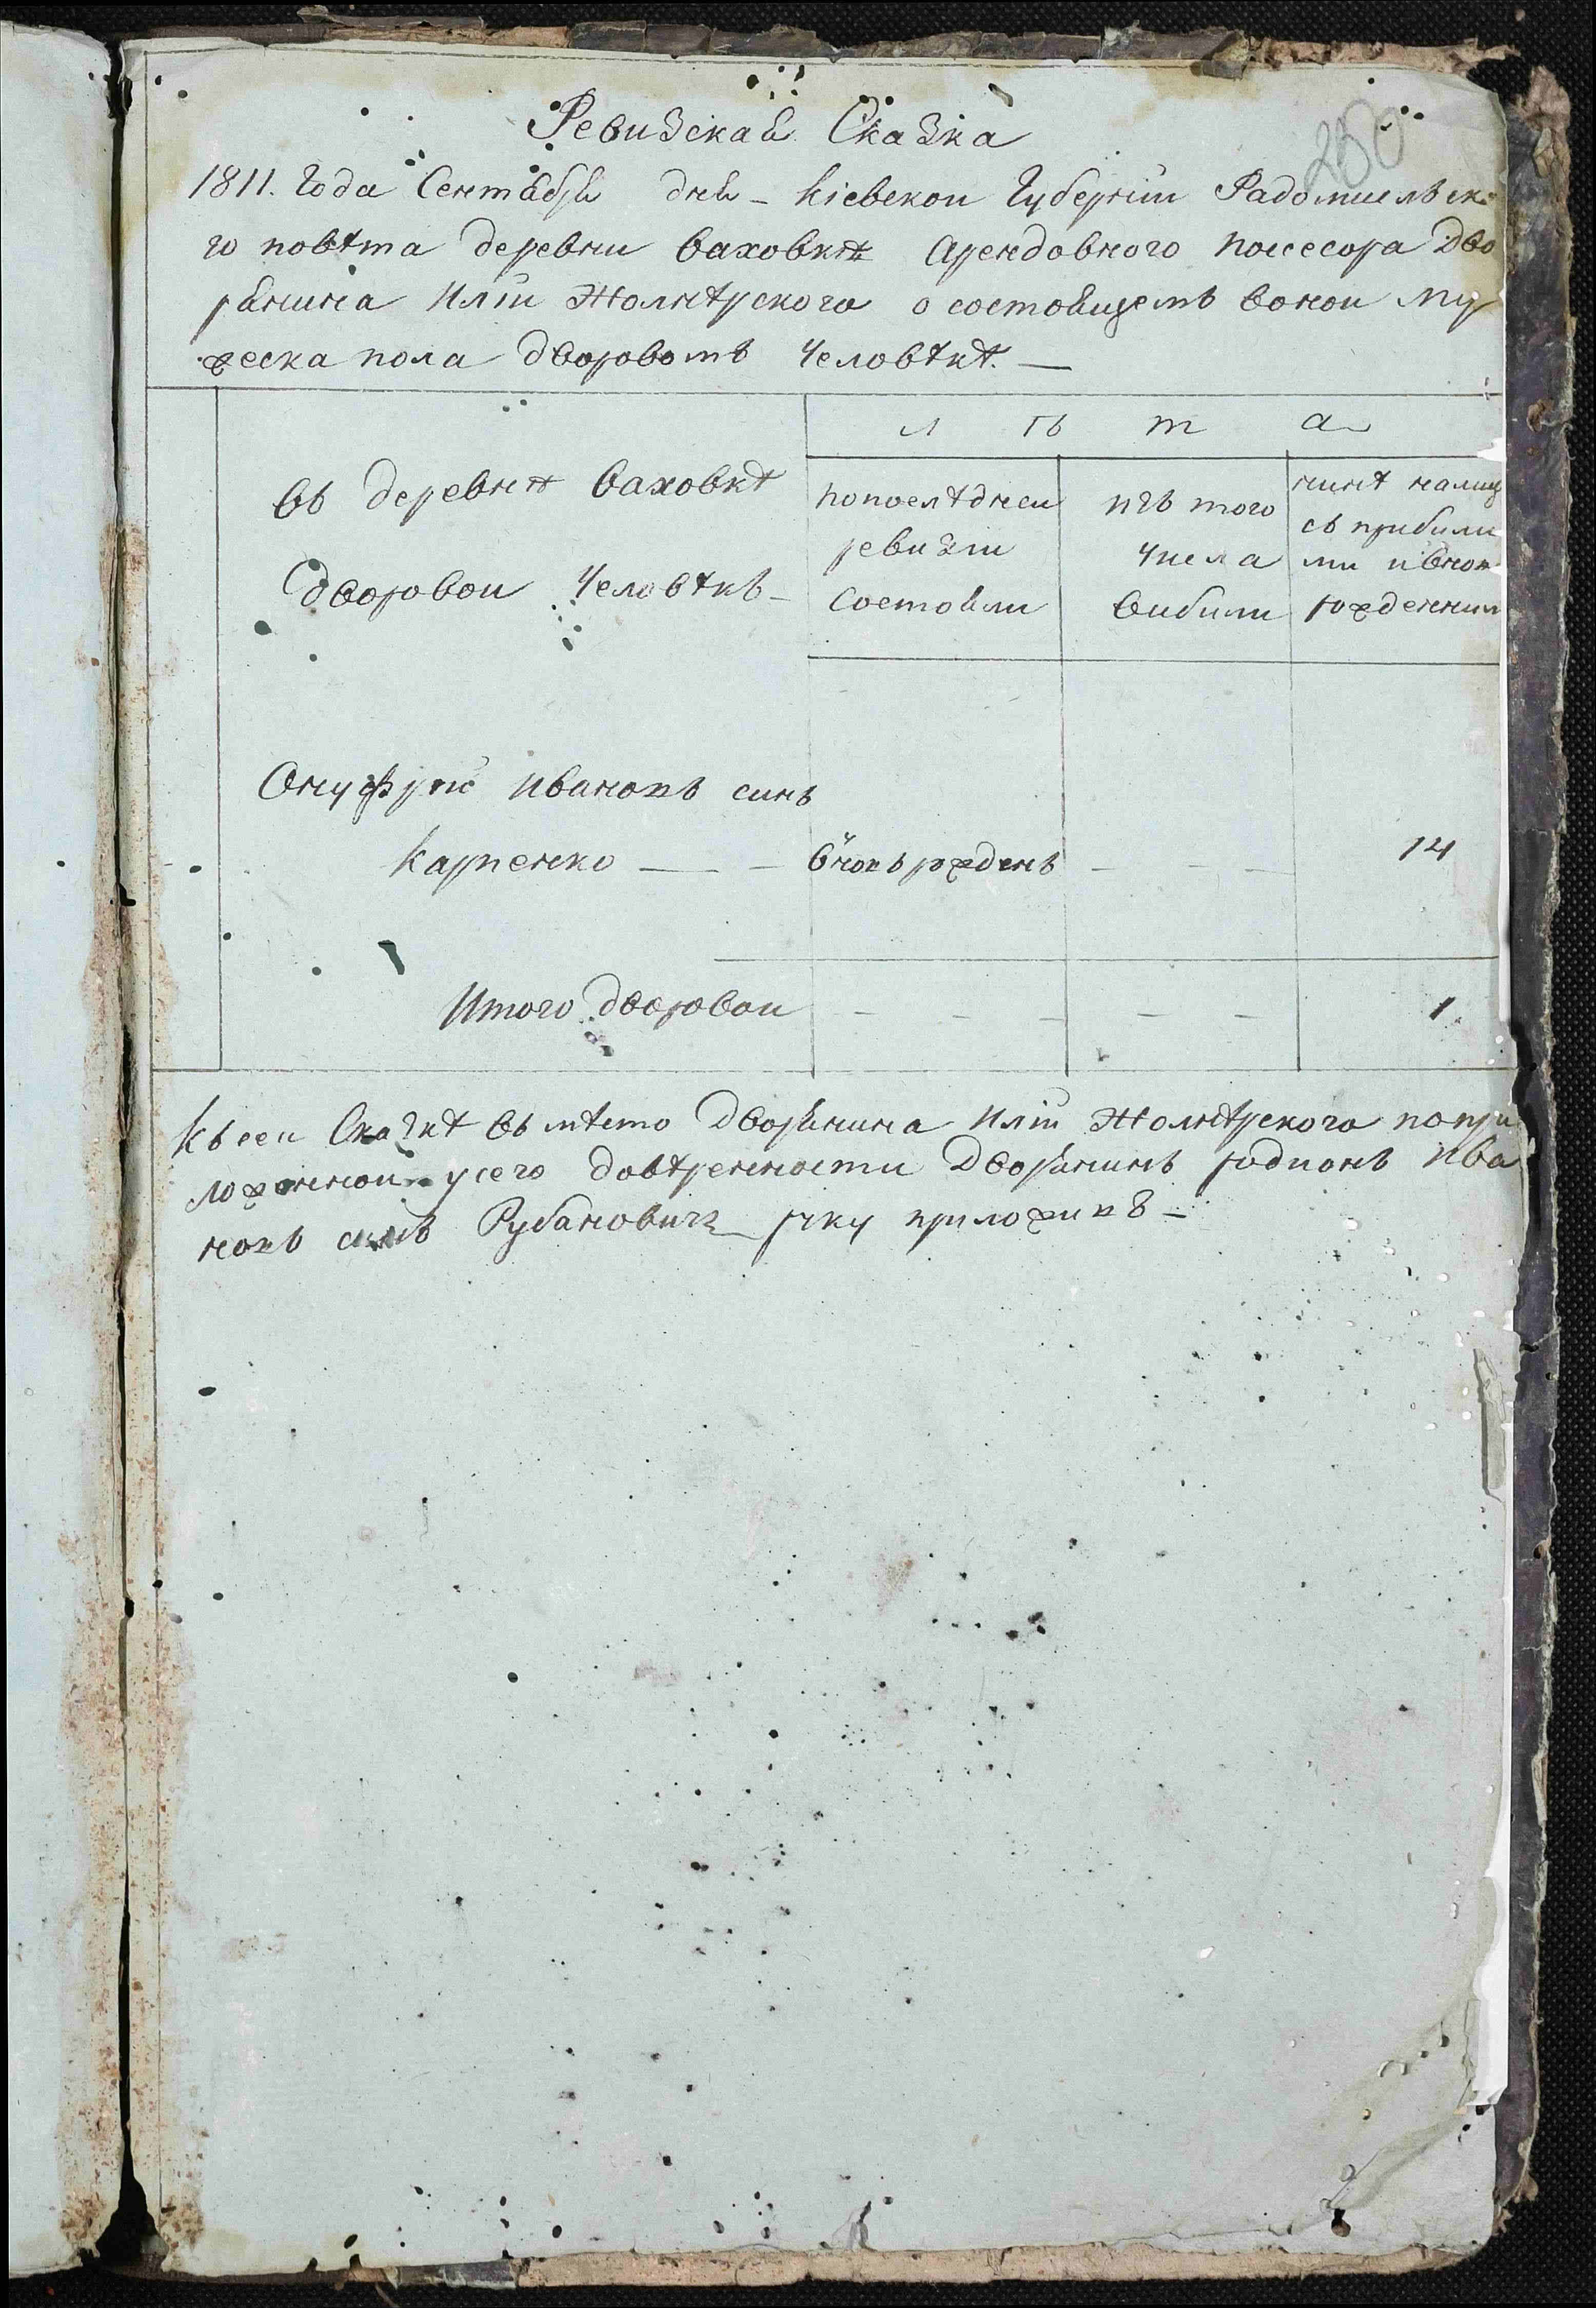 Ревизская Сказка
280
1811. Года Сентября дня - Кіевскои Губерніи Радомисльско
го повѣта деревни Ваховкѣ Арендовного посесора Дво
рянина Иліи Жолнѣрского о состоящемъ вонои му
жеска пола дворовомъ человѣкѣ. —
л ѣ т а
Въ деревнѣ Ваховкѣ
дворовои человѣкъ -
попослѣднеи
ревизіи
состояли
изъ того
числа
вибили
нинѣ налиц
съ прибили
ми ивнов
рожденним
Онуфріи Ивановъ синъ
Карпенко — — вновърожденъ - - - 14
Итого дворовои - - - - - 1
Къ сеи Сказкѣ въ мѣсто Дворянина Иліи Жолнѣрского попри
ложеннои у сего довѣренности Дворянинъ родионъ Ива
новъ синъ Рубановичъ руку приложилъ -